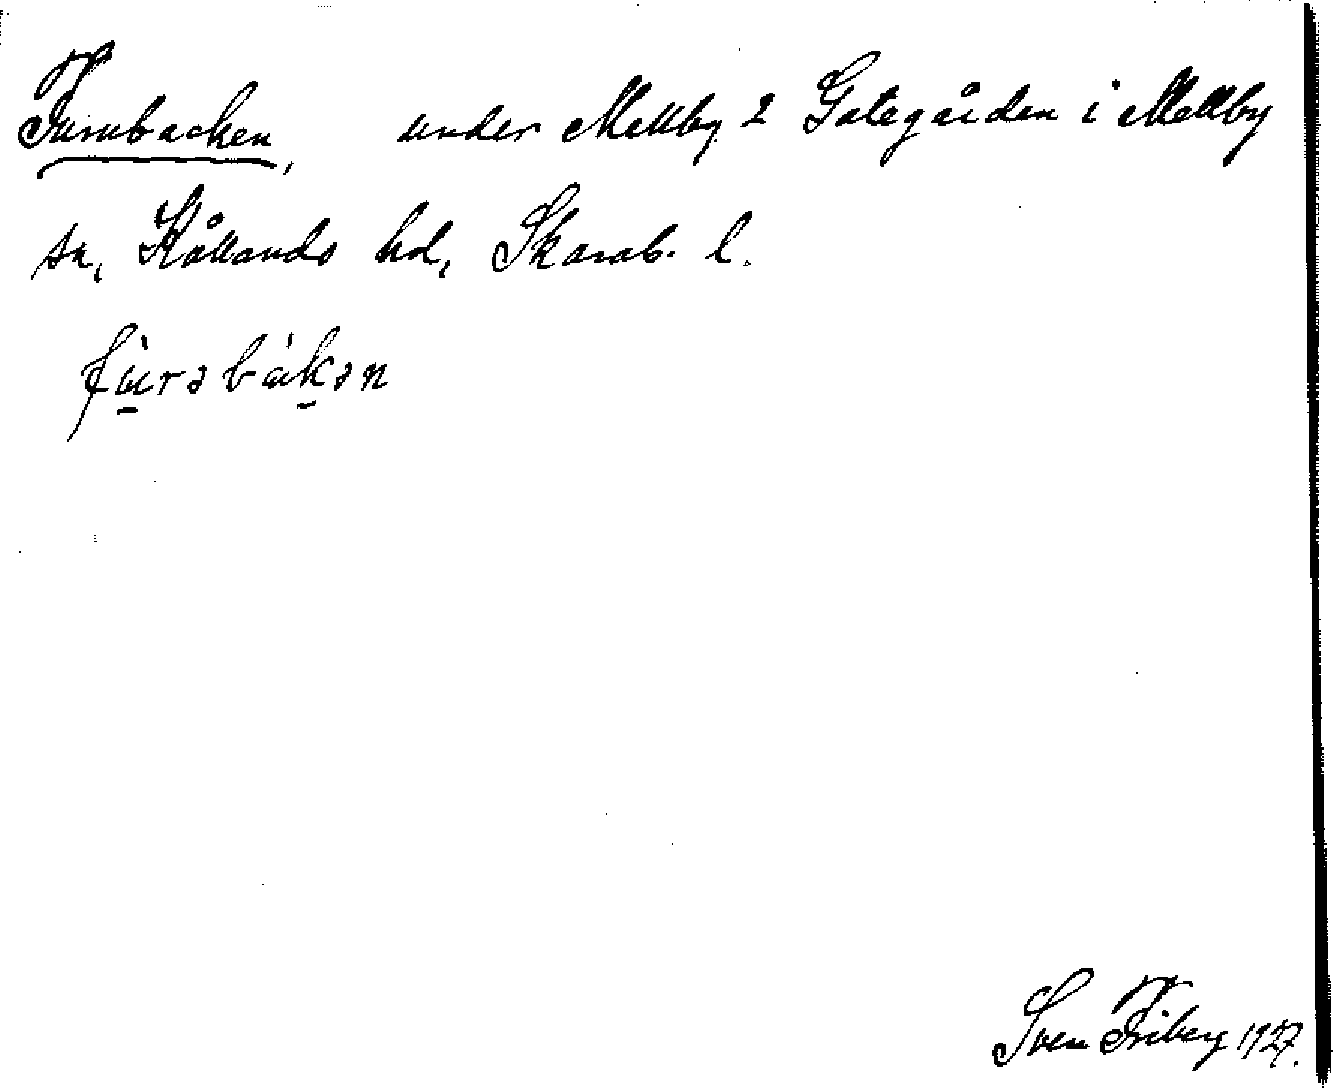 Furubacken, under Mellby 2 Gategården i Mellby
sn, Kållands hd, Skarab. l.
fùrəbákən
Sven Friberg 1927.